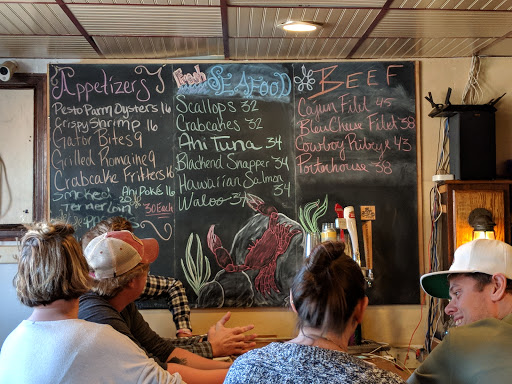 Appetizers
Pesto Parm Oysters 16
Crispy Shrimp 16
Gator Bites 9
Grilled Romaine 9
Crabcake Fritters 16
Smoked
Ahi Poke 16
30 Each
Fresh SEAFOOD
Scallops 32
Crabcakes 32
Ahi Tuna 34
Blackend Snapper 34
Hawaiian Salmon 34
Waloo 34
BEEF
Cajun Filet 45
Bleu Cheese Filet 38
Cowboy Ribeye 43
Porterhouse 38